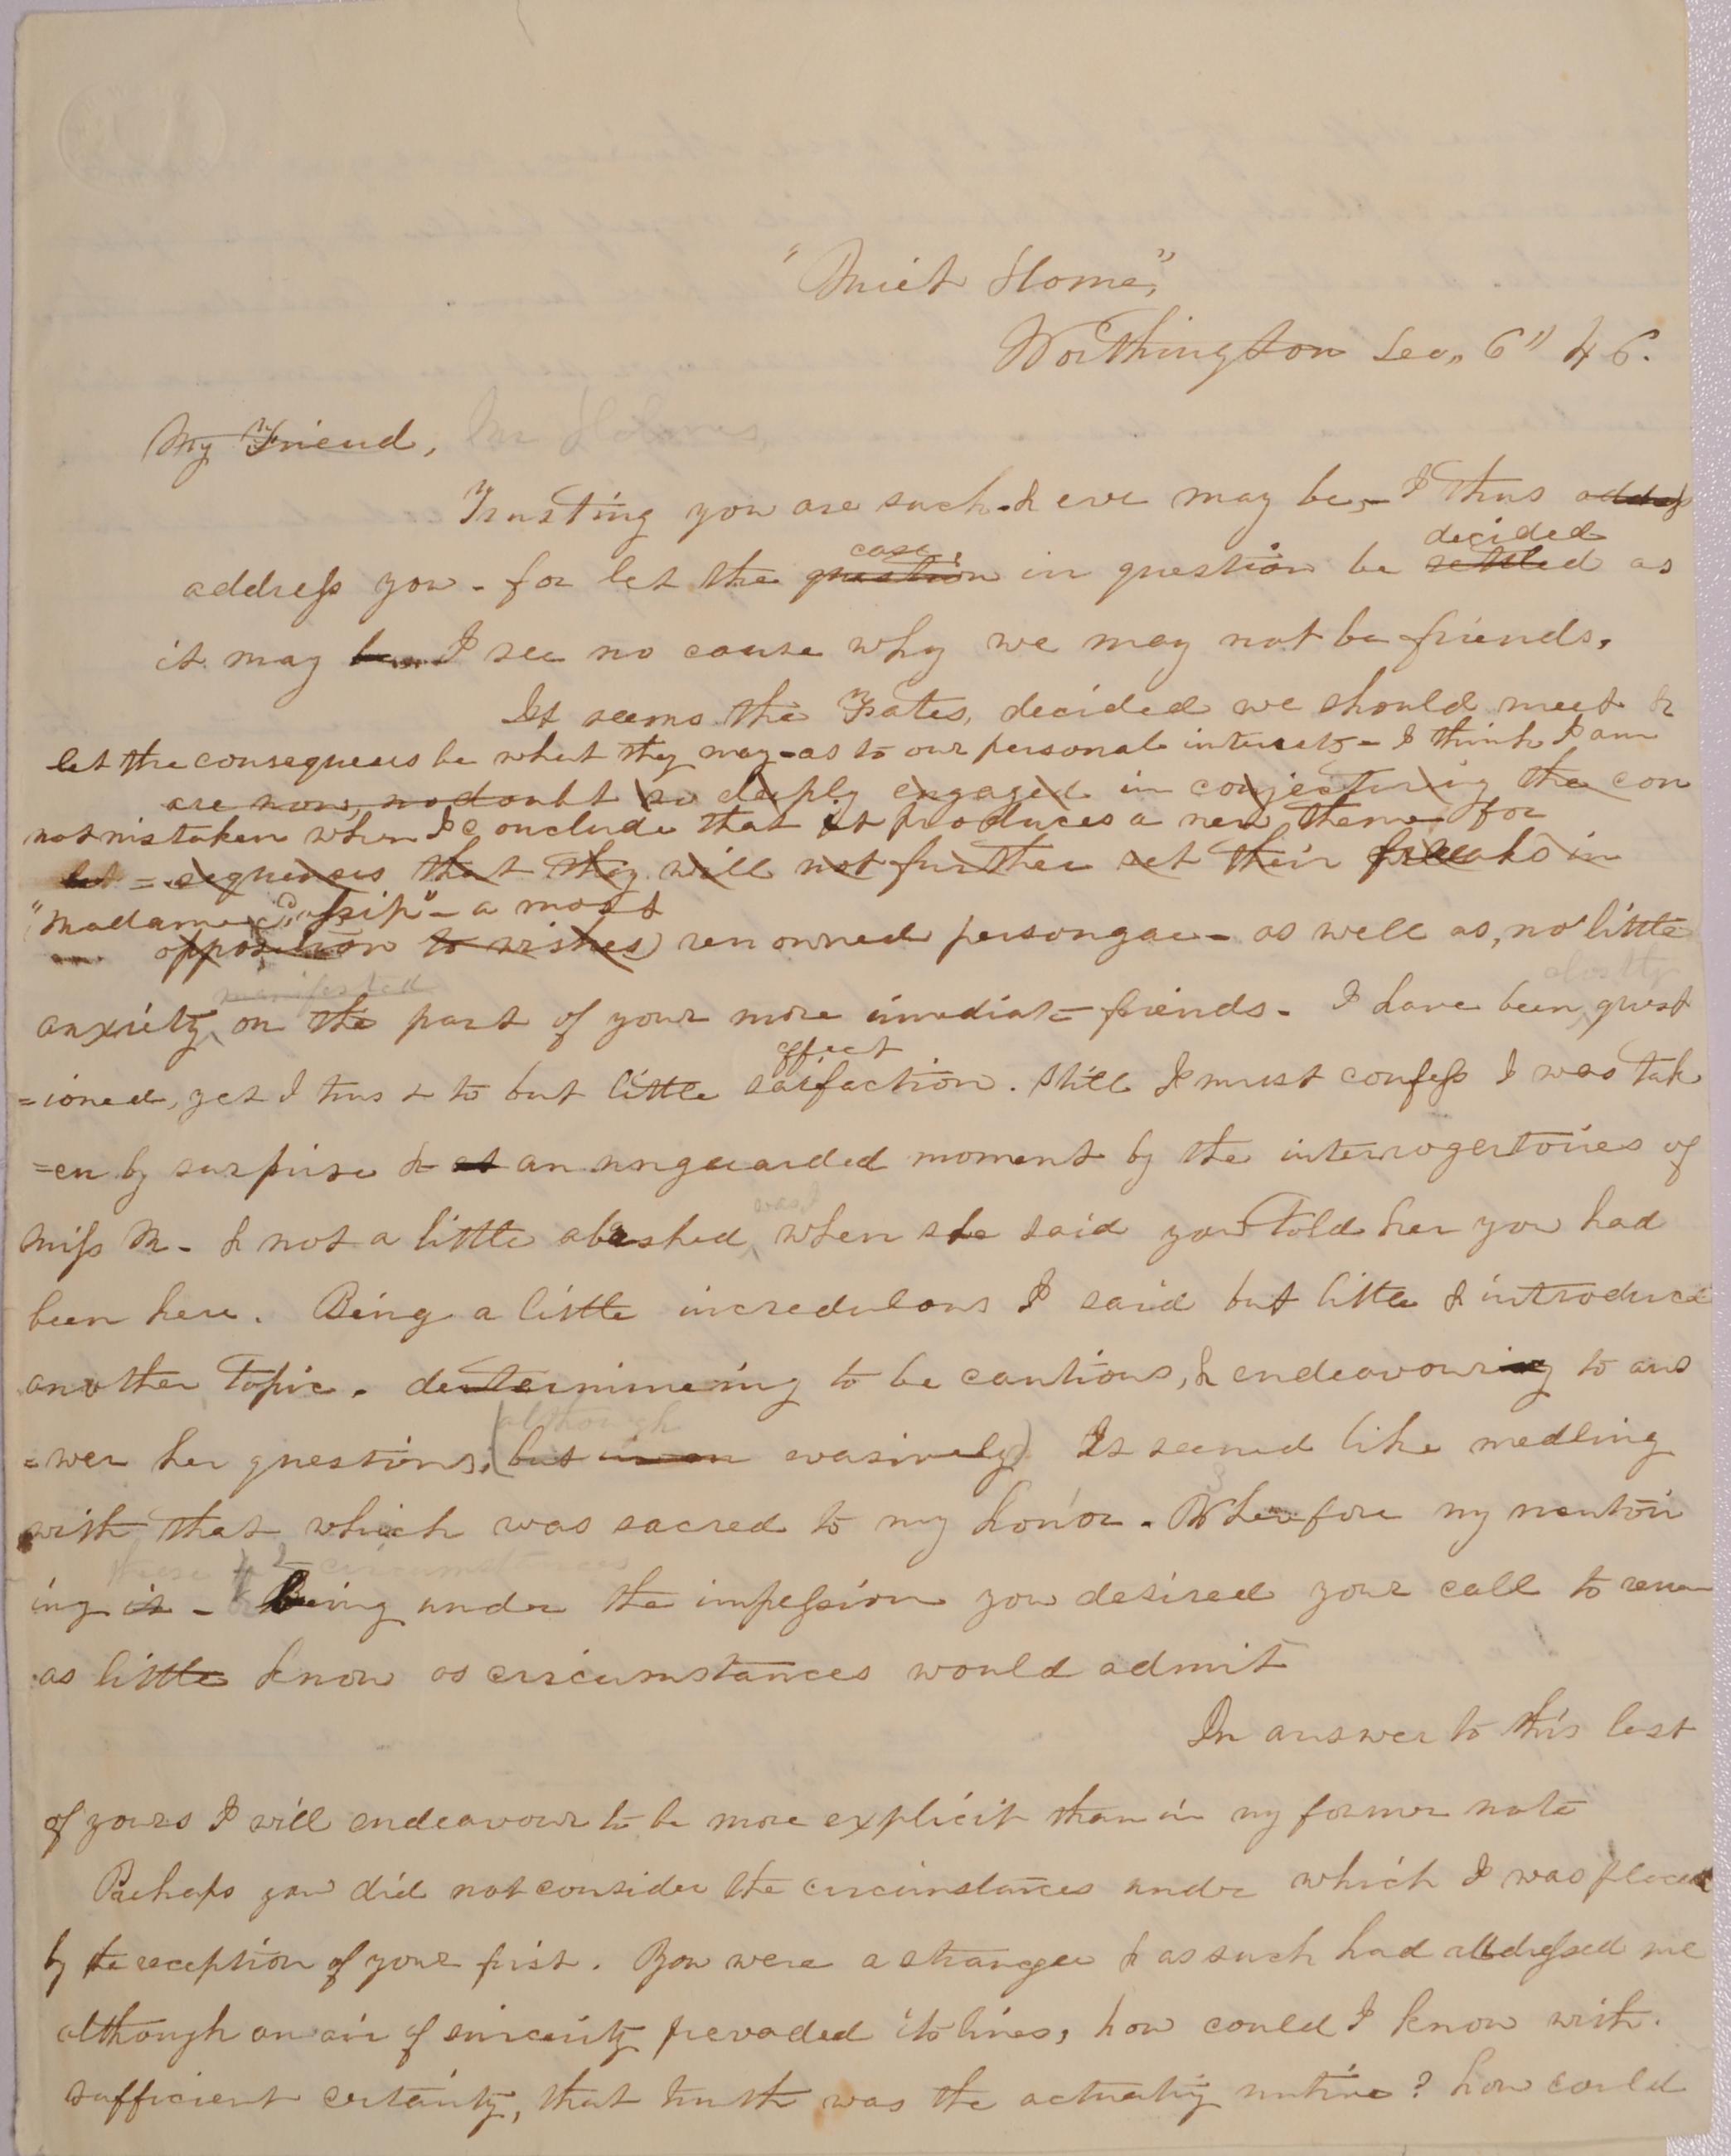 "Quiet Home,"
Worthington Dec,, 6" 46.
My Friend, Mr Holmes,
Trusting you are such - & ever may be, - I thus addres
decided
case,
address you - for let the question in question be settled as
it may be I see no cause why we may not be friends.
It seems the Fates, decided we should meet &
let the consequences be what they may - as to our personal interests - I think I am
are now, no doubt so deeply engaged in conjecturing the con
not mistaken when I conclude that it produces a new theme for
= sequences that they will not further set their freaks in
"Madame Gossip" - a most
opposition to wishes) renowned persongae - as well as, no little
manifested
anxiety on the part of your more imediate friends. - I have been closely quest
effect
=ioned, yet I trust to but little saisfaction. Still I must confess I was tak
=en by surprise & at an unguarded moment by the interrogertoires of
was I
Miss M - & not a little abashed when she said you told her you had
been here. Being a little incredulous I said but little & introduced
another topic. determineing to be cautious, & endeavouring to ans
(although
=wer her questions, (but evasively) It seemed like medling
with that which was sacred to my honor. Wherefore my mention
these circumstances
ing it - Being under the impession you desired your call to
as little know as circumstances would admit
In answer to this last
of yours I will endeavour to be more explicit than in my former note
Perhaps you did not consider the circumstances under which I was placed
by the reception of your first. You were a stranger & as such had addressed me
although an air of sincerity pervaded its lines, how could I know with
sufficient certainty, that truth was the actuating motive? how could